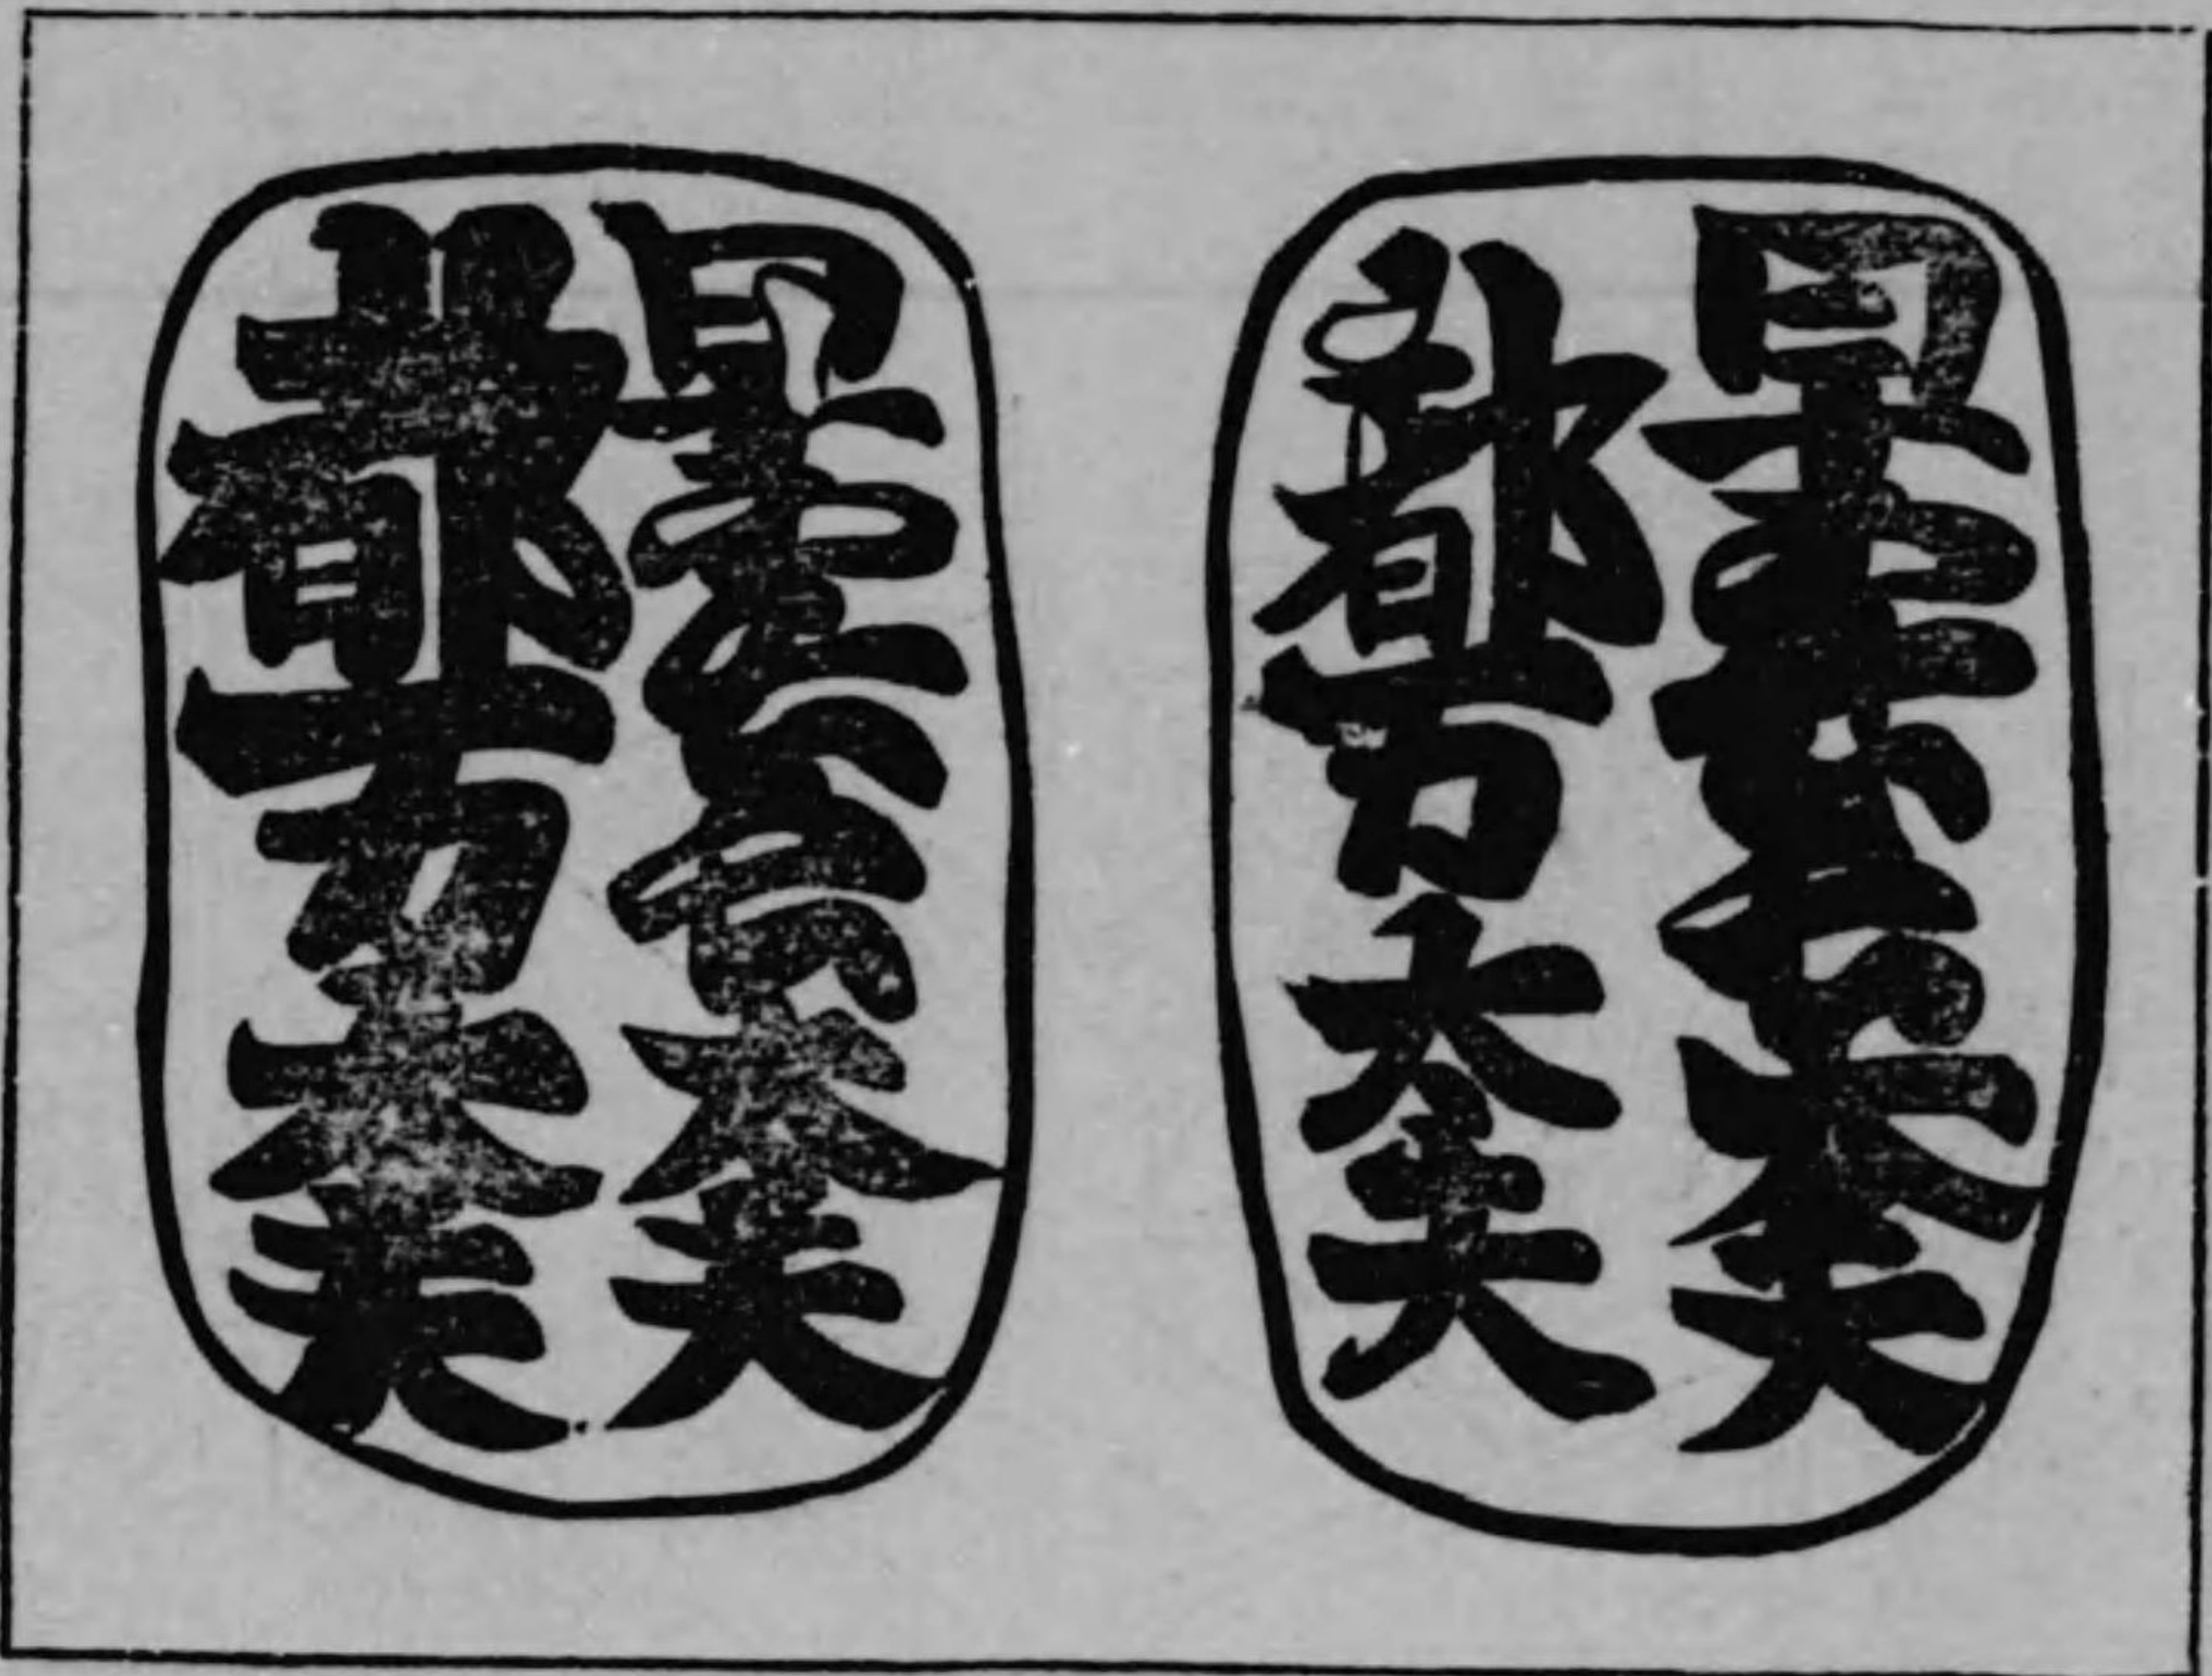 早雲長太夫
都万太夫
早雲長太夫
都万太夫